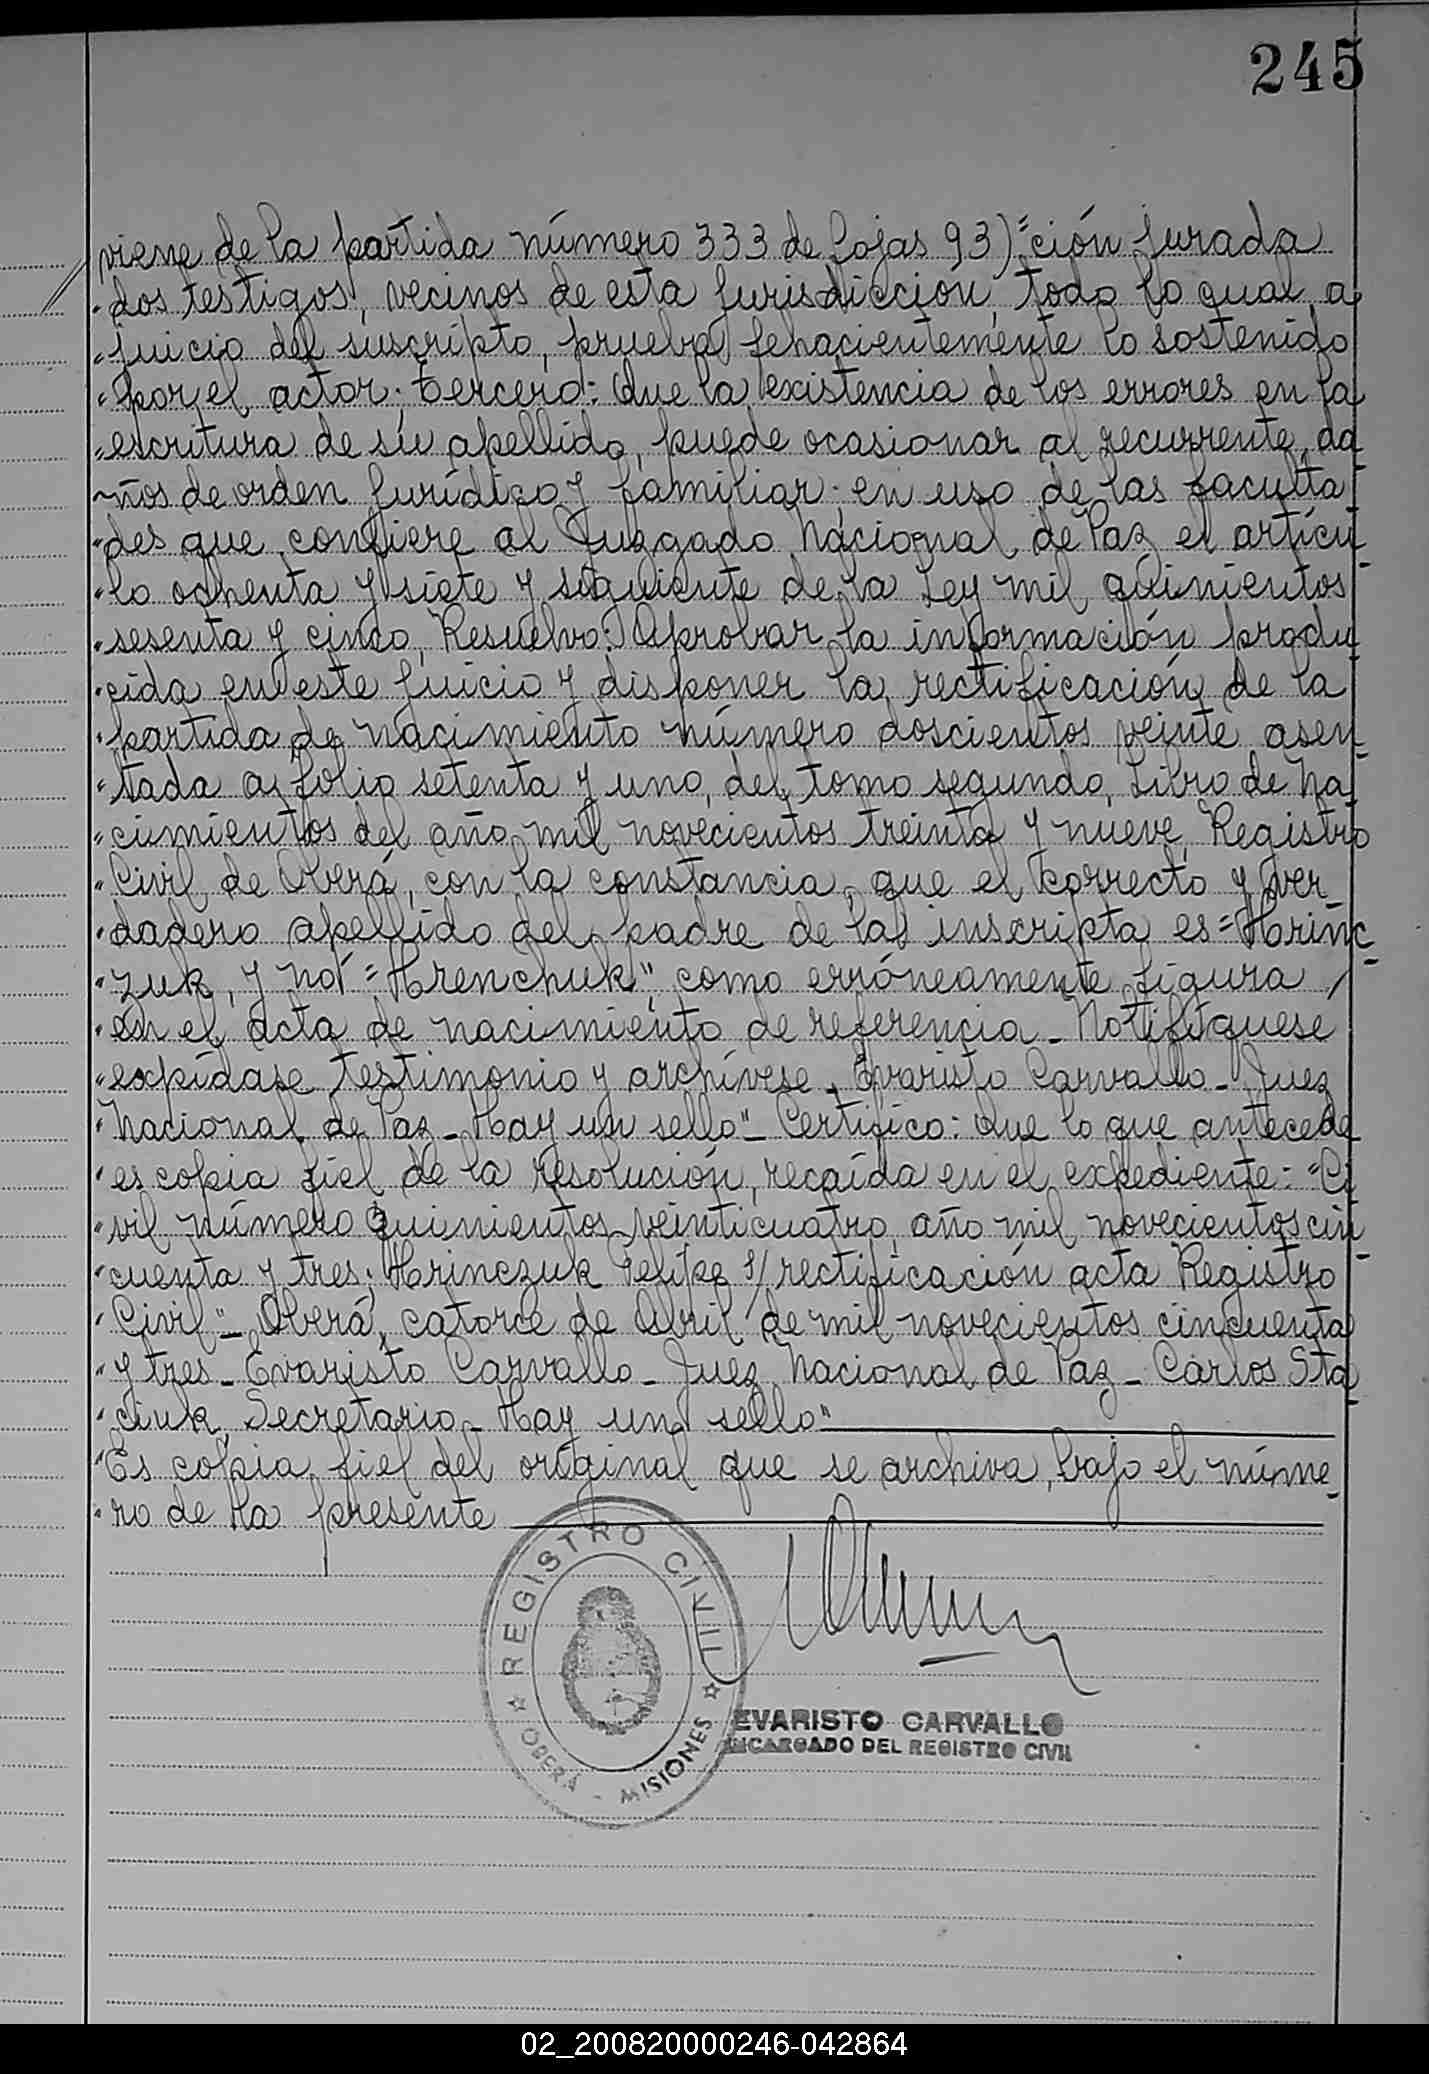 245
viene de la partida número 333 de fojas 93) "ción jurada
"dos testigos, vecinos de esta jurisdicción, todo lo qual, a
"juicio del suscripto, prueba fehacientemente lo sostenido
"por el actor; tercero: Que la existencia de los errores en la
"escritura de su apellido, puede ocasionar al recurrente, da
"ños de orden jurídico y familiar; en uso de las faculta
"des que confiere al Juzgado Nacional de Paz el artícu-
"lo ochenta y siete y siguiente de la Ley mil quinientos
"sesenta y cinco, Resuelvo: Aprobar la información produ
"cida en este juicio y disponer la rectificación de la
"partida de nacimiento número doscientos veinte asen-
"tada a folio setenta y uno, del tomo segundo, Libro de Na-
"cimientos del año mil novecientos treinta y nueve, Registro
"Civil de Oberá, con la constancia, que el correcto y ver
"dadero apellido del padre de la inscripta es = Hrinc-
"zuk, y no = Hrenchuk", como erróneamente figura
"en el acta de nacimiento de referencia - Notifíquese
"expídase testimonio y archívese - Evaristo Carvallo - Juez
"Nacional de Paz - Hay un sello" - Certifico: Que lo que antecede
"es copia fiel de la resolución, recaída en el expediente: "Ci
"vil número quinientos veinticuatro, año mil novecientos cin-
"cuenta y tres; Hrinczuk Felipe s/ rectificación acta Registro
"Civil" - Oberá, catorce de Abril de mil novecientos cincuenta
"y tres - Evaristo Carvallo - Juez Nacional de Paz - Carlos Sta-
"ciuk, Secretario - Hay un sello"
"Es copia fiel del original que se archiva, bajo el núme-
"ro de la presente
REGISTRO CIVIL
OBERÁ - MISIONES
EVARISTO CARVALLO
ENCARGADO DEL REGISTRO CIVIL
02_200820000246-042864